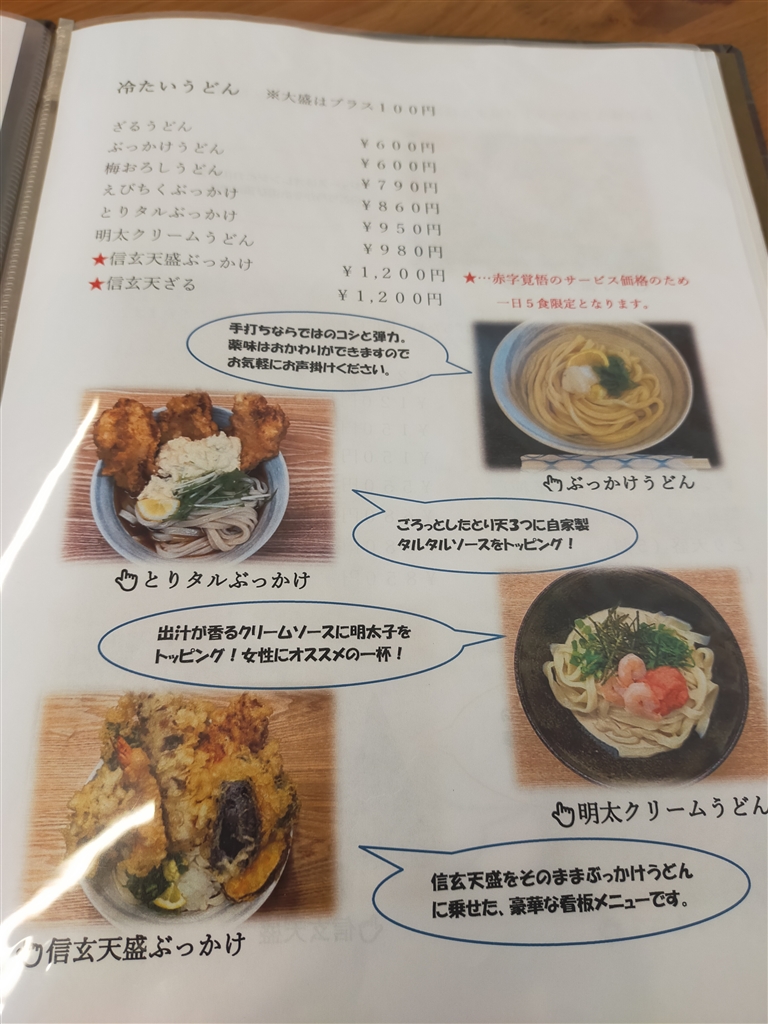 冷たいうどん ※大盛はプラス１００円
ざるうどん ￥６００円
ぶっかけうどん ￥６００円
梅おろしうどん ￥７９０円
えびちくぶっかけ ￥８６０円
とりタルぶっかけ ￥９５０円
明太クリームうどん ￥９８０円
★信玄天盛ぶっかけ ￥１,２００円
★信玄天ざる ￥１,２００円
★…赤字覚悟のサービス価格のため
一日５食限定となります。
手打ちならではのコシと弾力。
薬味はおかわりができますので
お気軽にお声掛けください。
ぶっかけうどん
ごろっとしたとり天3つに自家製
タルタルソースをトッピング！
とりタルぶっかけ
出汁が香るクリームソースに明太子を
トッピング！女性にオススメの一杯！
明太クリームうどん
信玄天盛をそのままぶっかけうどん
に乗せた、豪華な看板メニューです。
信玄天盛ぶっかけ